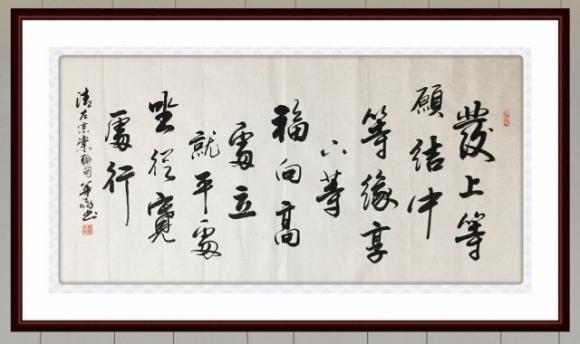 發上等
願結中
等緣享
下等
福向高
處立
就平處
坐從寬
處行
清左宗棠聯句